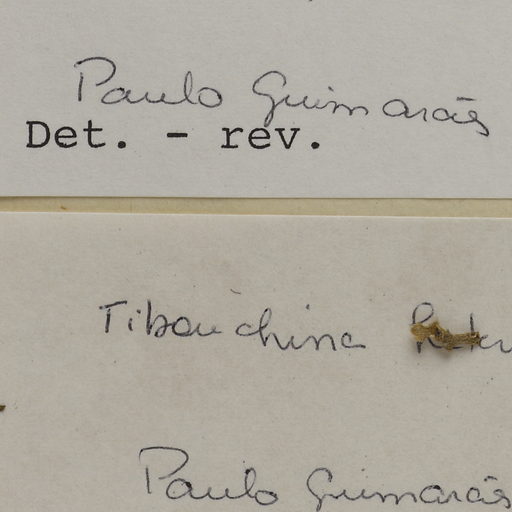 Paulo Guimarães
Det. - rev.
Tibouchina
Paulo Guimarães